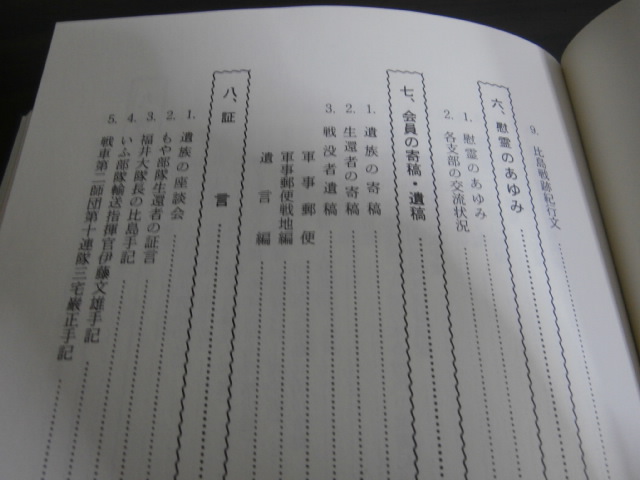 9. 比島戦跡紀行文
六、慰霊のあゆみ
1. 慰霊のあゆみ
2. 各支部の交流状況
七、会員の寄稿・遺稿
1. 遺族の寄稿
2. 生還者の寄稿
3. 戦役者遺稿
軍事郵便
軍事郵便戦地編
遺言編
八、証言
1. 遺族の座談会
2. もや部隊生還者の証言
3. 福井大隊長の比島手記
4. いふ部隊輸送指揮官伊藤文雄手記
5. 戦車第二師団第十連隊三宅巌正手記